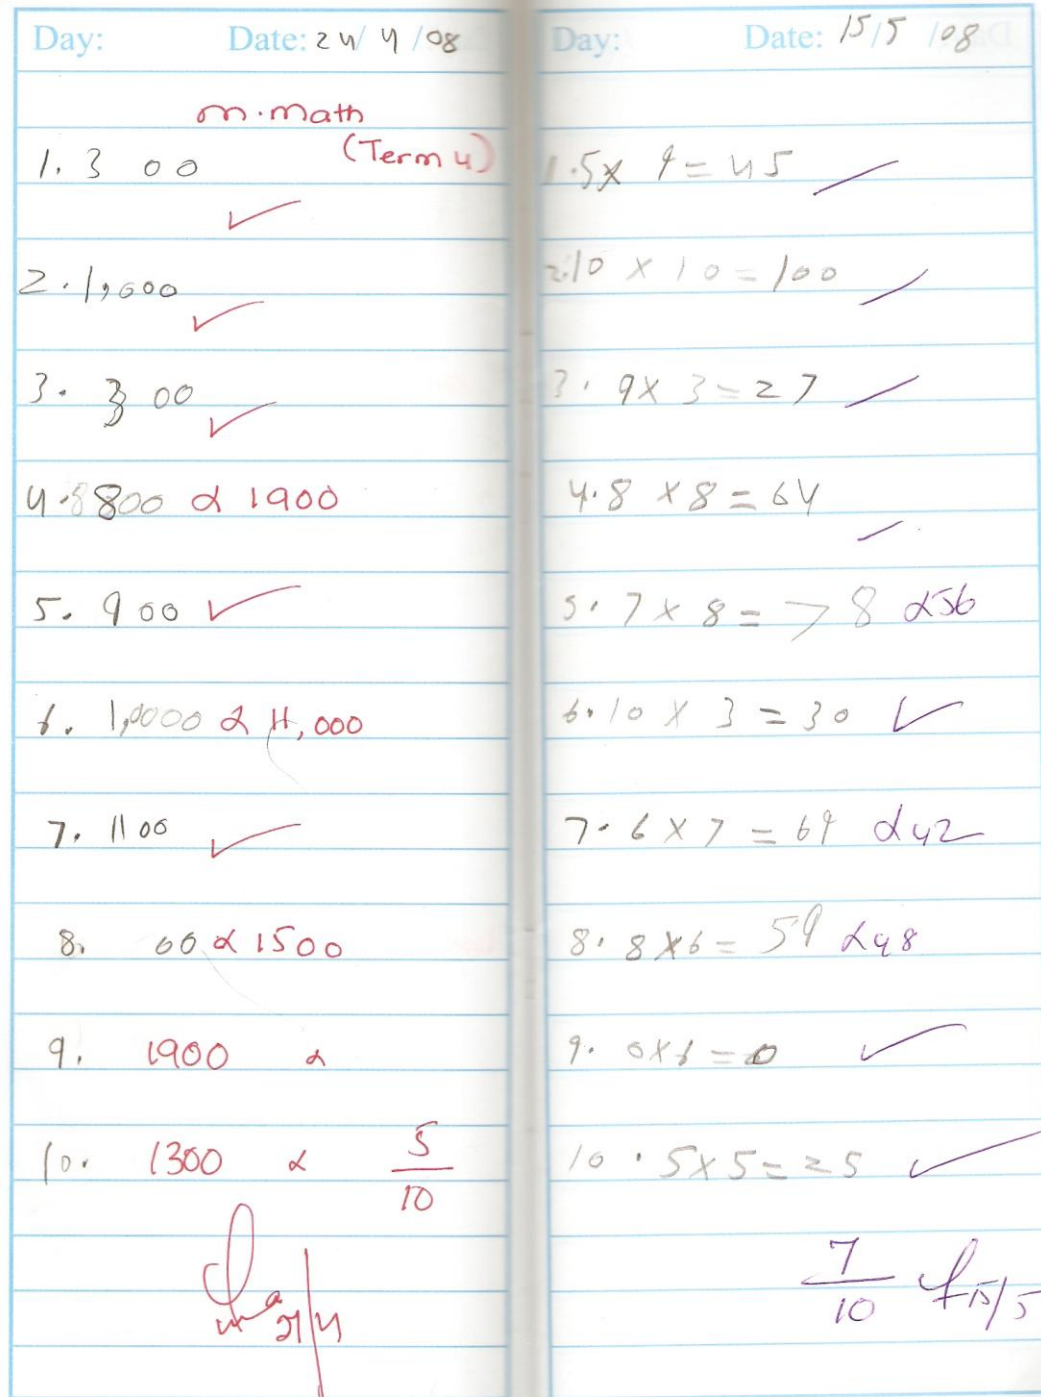 Day: Date: 24/4/08
m.math
(Term 4)
1. 3 00
2. 1,000
3. 3 00
4. 8800 α 1900
5. 900
6. 1,0000 α 11,000
7. 1100
8. 00 α 1500
9. 1900 α
10. 1300 α 5/10
Day: Date: 15/5/08
1. 5 x 9 = 45
2. 10 x 10 = 100
3. 9 x 3 = 27
4. 8 x 8 = 64
5. 7 x 8 = 78 α 56
6. 10 x 3 = 30
7. 6 x 7 = 69 α 42
8. 8 x 6 = 59 α 48
9. 0 x 6 = 0
10. 5 x 5 = 25
7/10
15/5